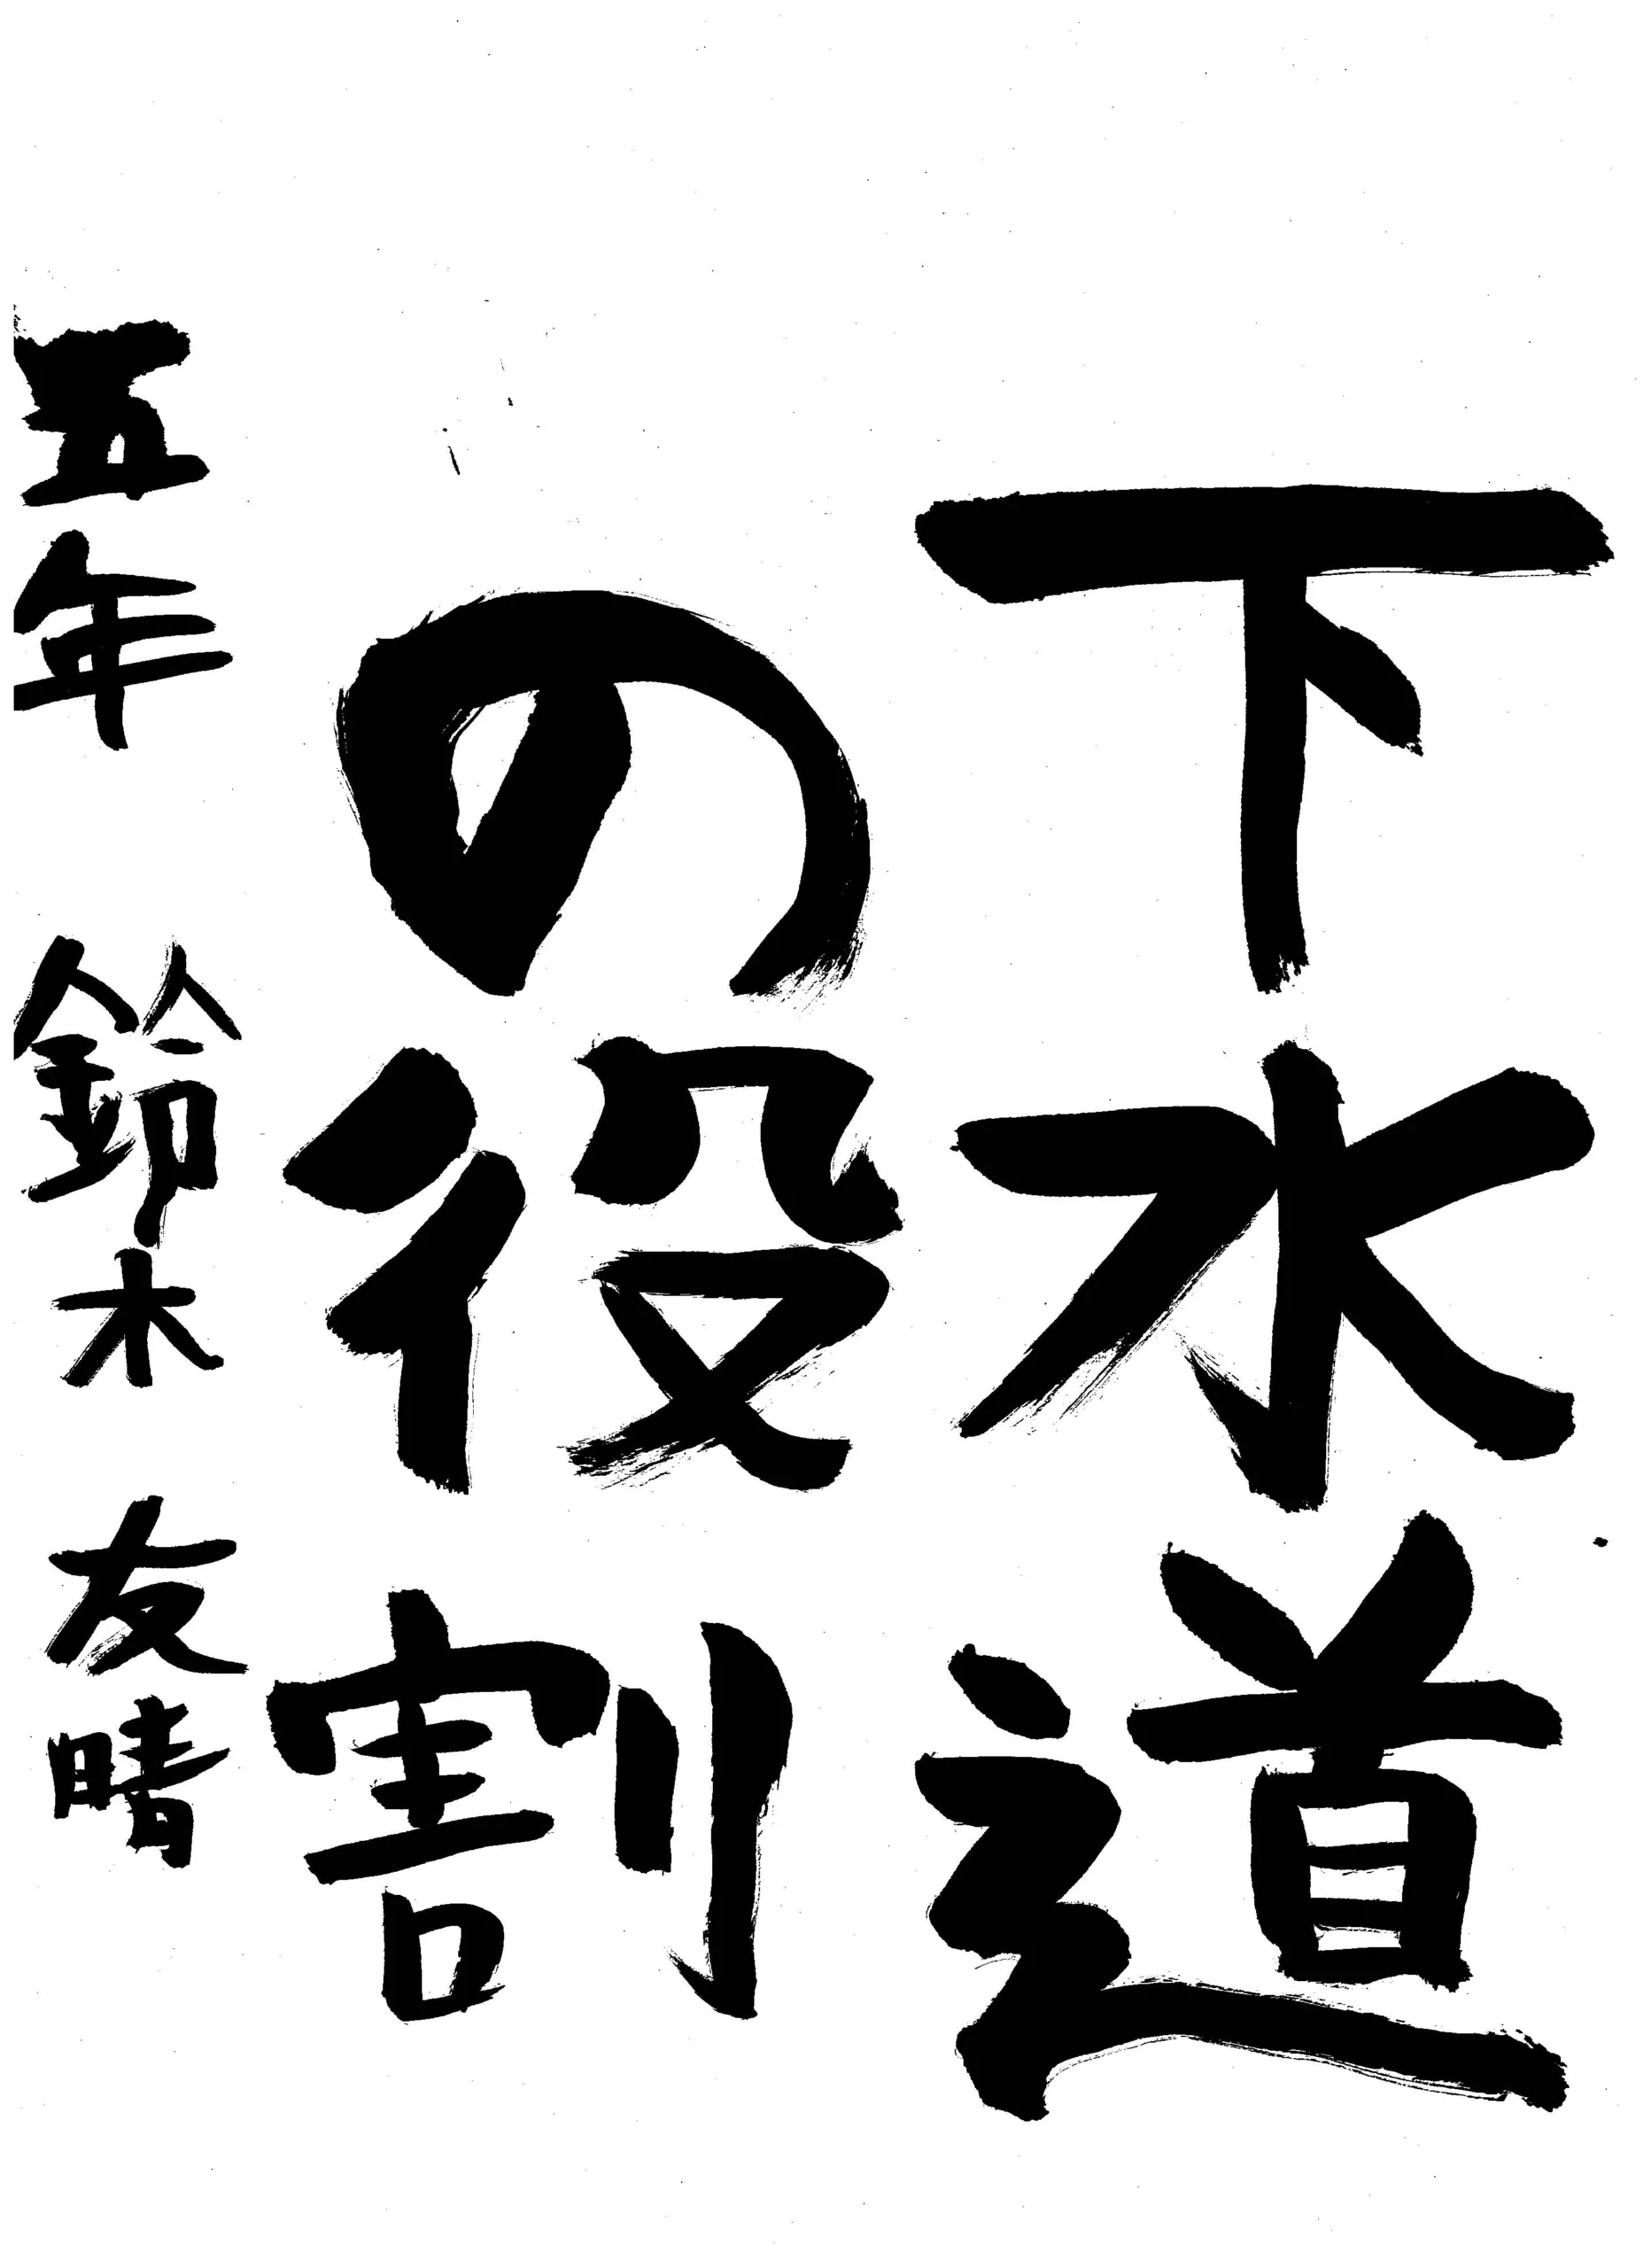 下水道
の役割
五年 鈴木 友晴